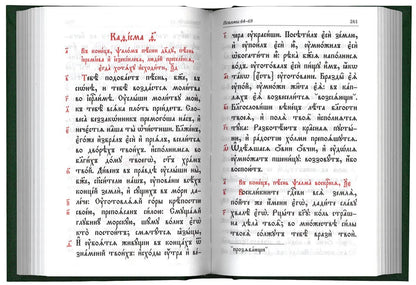 Каѳісма
Въ конецъ, ѱаломъ пѣсни дв҃дꙋ, пѣснь
і҆еремі́ева и҆ і҆езекі́илева, людїй преселе́нїѧ,
є҆гда̀ хотѧ́хꙋ и҆сходи́ти, ѯ҃д
Тебѣ̀ подоба́етъ пѣ́снь, бж҃е, въ
сїѡ́нѣ, и҆ тебѣ̀ возда́стсѧ моли́тва
во і҆ерⷭ҇ли́мѣ. Оу҆слы́ши моли́твꙋ мою̀,
къ тебѣ̀ всѧ́ка пло́ть прїи́детъ. Словеса̀
беззако́нникъ премого́ша на́съ, и҆
нечє́стїѧ на́ша ты̀ ѡ҆чи́стиши. Бл҃же́нъ,
є҆го́же и҆збра́лъ є҆сѝ и҆ прїѧ́лъ, всели́тсѧ
во дво́рѣхъ твои́хъ. и҆спо́лнимсѧ во
бл҃ги́хъ до́мꙋ твоегѡ̀, ст҃ъ хра́мъ
тво́й. Ди́венъ въ пра́вдѣ, оу҆слы́ши ны̀,
бж҃е, сп҃си́телю на́шъ, оу҆пова́нїе всѣ́хъ
конце́й землѝ, и҆ сꙋ́щихъ въ мо́ри да-
ле́че: Оу҆готовлѧ́ѧй го́ры крѣ́постїю
свое́ю, препоѧ́санъ си́лою: Смꙋща́ѧй
глꙋбинꙋ̀ морскꙋ́ю, шꙋ́мꙋ во́лнъ є҆гѡ̀
кто̀ постои́тъ; смѧтꙋ́тсѧ ꙗ҆зы́цы,
И҆ оу҆боѧ́тсѧ живꙋ́щїи въ конца́хъ ѿ
зна́менїй твои́хъ: и҆схо́ды оу҆́тра и҆ ве́-
Псалмы 64-65
чера оу҆краси́ши. Посѣти́лъ є҆сѝ зе́млю,
и҆ оу҆пои́лъ є҆сѝ ю҆̀, оу҆мно́жилъ є҆сѝ
ѡ҆богати́ти ю҆̀: рѣка̀ бж҃їѧ напо́лнисѧ
во́дъ. оу҆гото́валъ є҆сѝ пи́щꙋ и҆́мъ, ꙗ҆́кѡ
та́кѡ є҆́сть оу҆готова́нїе. Бразды̑ є҆ѧ̀
оу҆по́й, оу҆мно́жи жи̑та є҆ѧ̀: въ ка́-
плѧхъ є҆ѧ̀ возвесели́тсѧ "возсїѧ́ющи".
Бл҃гослови́ши вѣне́цъ лѣ́та бл҃гости
твоеѧ̀, и҆ полѧ̀ твоѧ̑ и҆спо́лнѧтсѧ
тꙋ́ка: Разботѣ́ютъ кра̑снаѧ пꙋсты́-
ни, и҆ ра́достїю хо́лми препоѧ́шꙋтсѧ.
Ѡ҆дѣ́ѧшасѧ ѻ҆́вни ѻ҆́вчїи, и҆ оу҆дѡ́лїѧ
оу҆мно́жатъ пшени́цꙋ: воззовꙋ́тъ, и҆́бо
воспою́тъ.
Въ коне́цъ, пѣ́снь ѱалма̀ воскрⷭ҇нїѧ, ѯ҃е
Воскли́кните гдⷭ҇еви всѧ̀ землѧ̀,
по́йте же и҆́мени є҆гѡ̀, дади́те сла́вꙋ
хвалѣ̀ є҆гѡ̀. Рцы́те бг҃ꙋ: ко́ль стра́ш-
на дѣла̀ твоѧ̑; во мно́жествѣ си́лы
твоеѧ̀ солжꙋ́тъ тебѣ̀ вразѝ твоѝ.